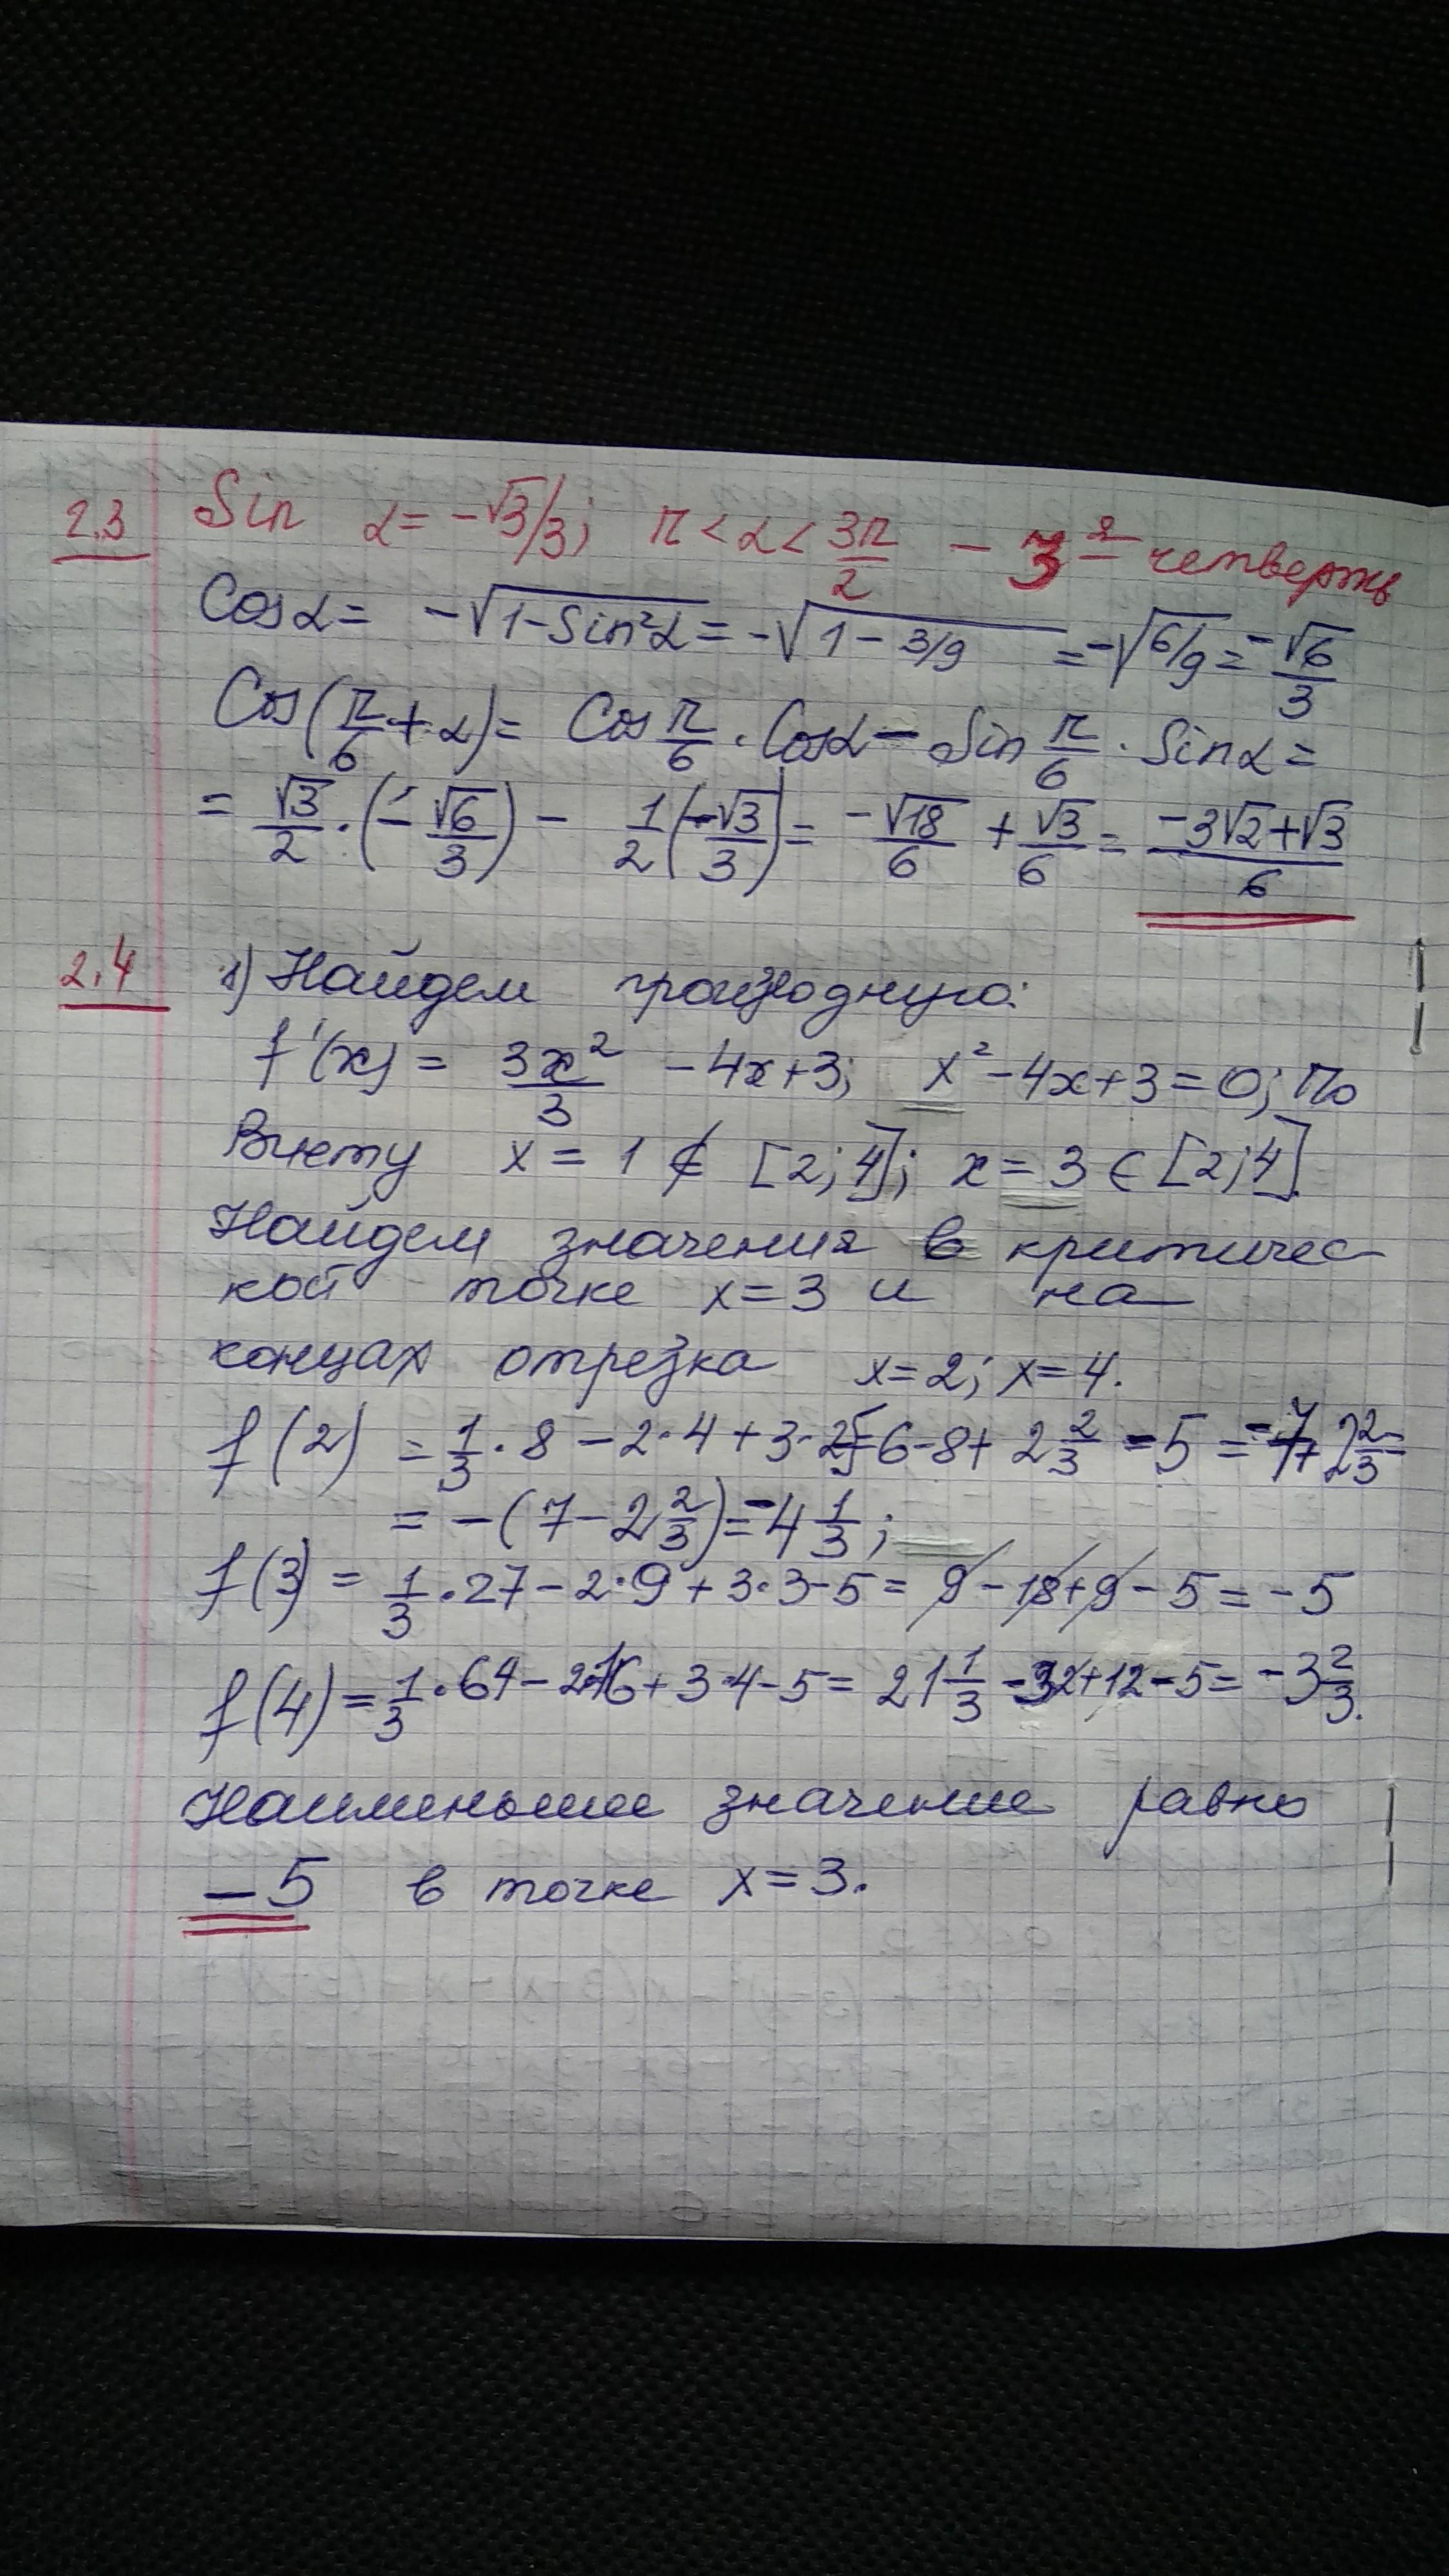 2.3 Sin α = -√3/3; π < α < 3π/2 - 3я четверть
Cos α = -√(1-Sin²α) = -√(1-3/9) = -√(6/9) = -√6/3
Cos(π/6 + α) = Cos π/6 · Cos α - Sin π/6 · Sin α =
= √3/2 · (-√6/3) - 1/2(-√3/3) = -√18/6 + √3/6 = (-3√2+√3)/6
2.4 1) Найдем производную:
f'(x) = 3x²/3 - 4x+3; x²-4x+3=0; По
Виету x = 1 ∉ [2;4]; x = 3 ∈ [2;4].
Найдем значения в критичес
кой точке x=3 и на
концах отрезка x=2; x=4.
f(2) = 1/3 · 8 - 2·4 + 3·2-5=6-8+ 2 2/3 -5 = -7+ 2 2/3 =
= -(7-2 2/3) = -4 1/3;
f(3) = 1/3 · 27 - 2·9 + 3·3-5 = 9-18+9-5 = -5
f(4) = 1/3 · 64 - 2·16 + 3·4-5 = 21 1/3 -32+12-5 = -3 2/3.
Наименьшее значение равно
-5 в точке x=3.